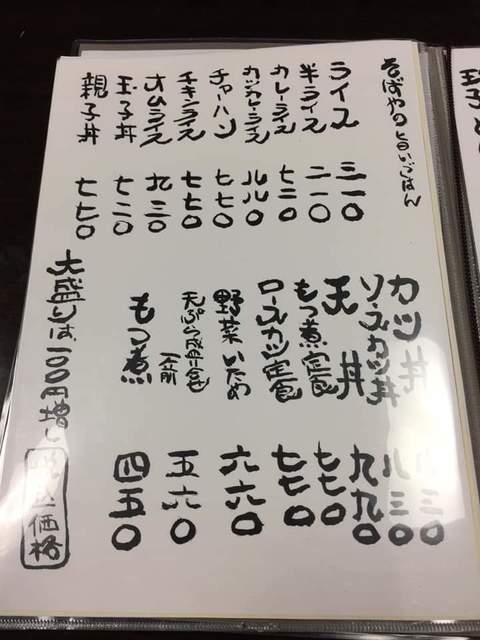 そばやの旨いごはん
ライス 三一〇
半ライス 二一〇
カレーライス 七二〇
カツカレーライス 八八〇
チャーハン 七七〇
チキンライス 七七〇
オムライス 九三〇
玉子丼 七二〇
親子丼 七七〇
カツ丼 三〇
ソースカツ丼 八三〇
天丼 九九〇
もつ煮定食 七七〇
ロースカツ定食 七七〇
野菜いため 六六〇
天ぷら盛り合せ 一人前 五六〇
もつ煮 四五〇
大盛りは、一〇〇円増し
価格
玉子と